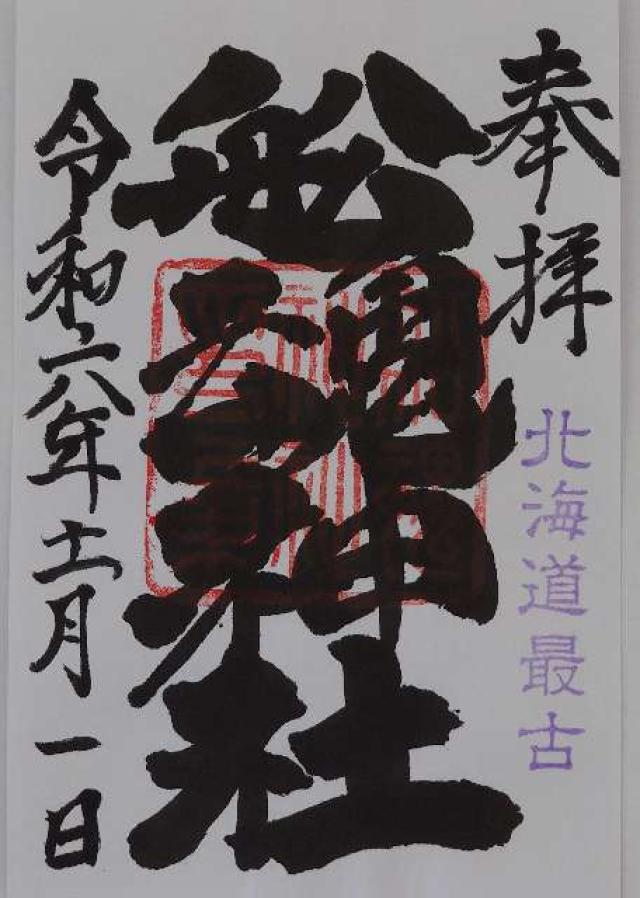 奉拝
北海道最古
船魂神社
令和六年十一月一日